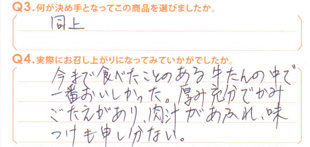 Q3.何が決め手となってこの商品を選びましたか。
同上
Q4.実際にお召し上がりになってみていかがでしたか。
今まで食べたことのある牛たんの中で
一番おいしかった。厚み充分でかみ
ごたえがあり、肉汁があふれ、味
つけも申し分ない。